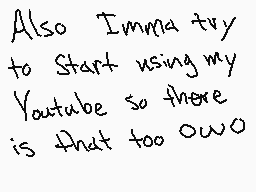 Also Imma try
to start using my
Youtube so there
is that too OwO